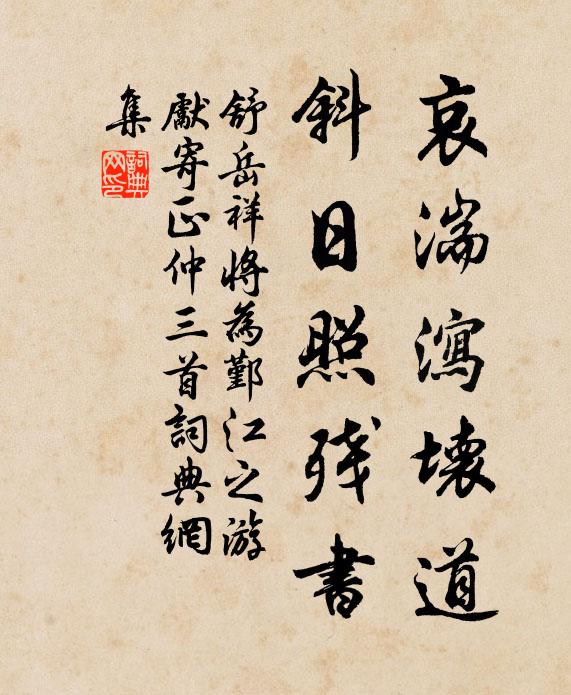 哀湍瀉壊道
斜日照残書
舒岳祥將為鄞江之游
獻寄正仲三首詞典網
集
詞典
网印